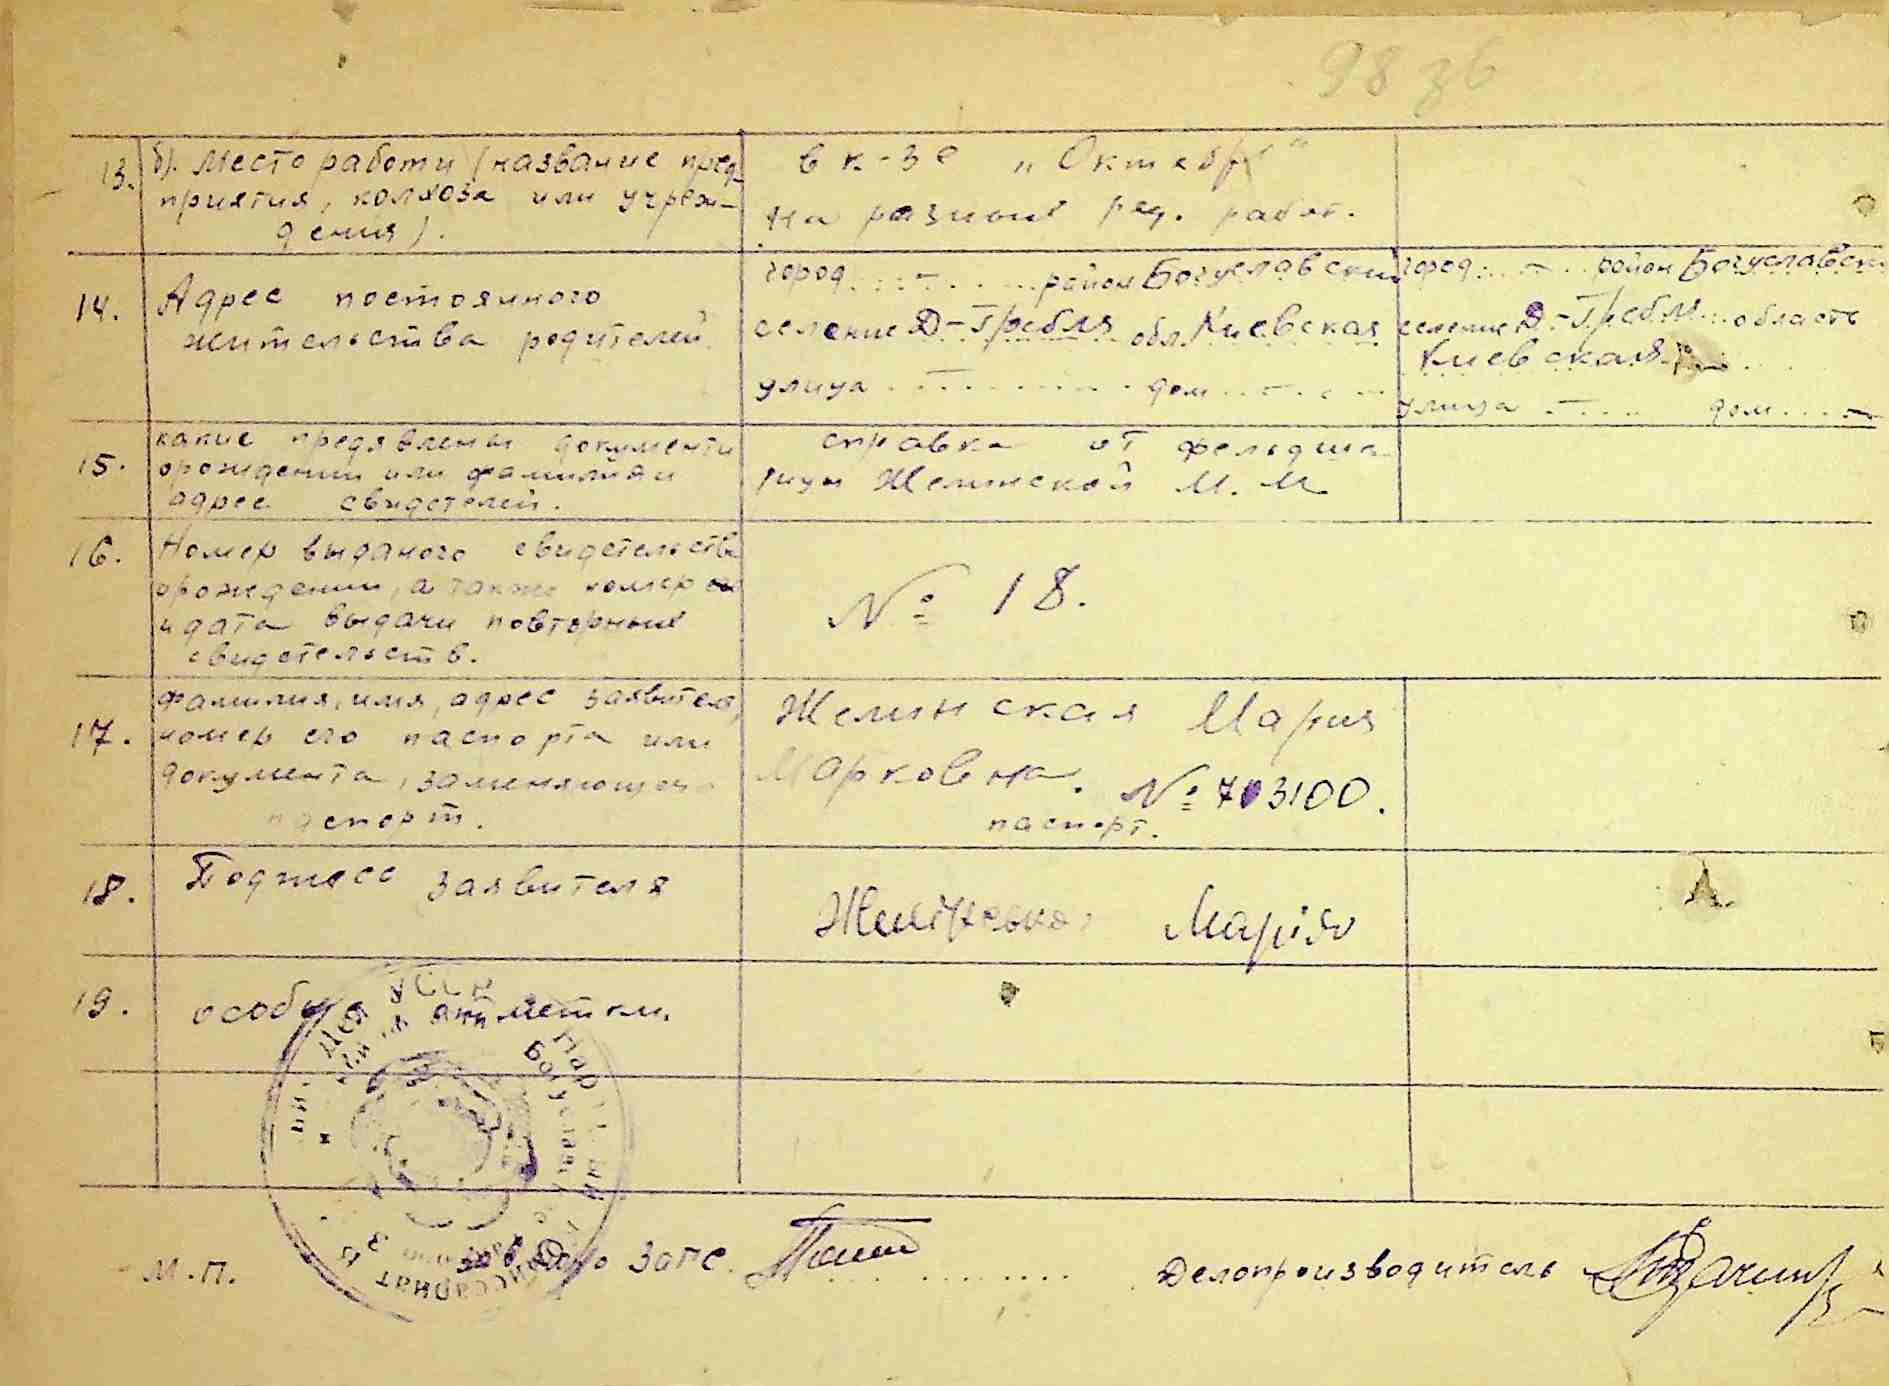 98 зв
13. б). Место работи (название пред-
приятия, колхоза или учреж-
дения).
в к-зе „Октебрь"
на разных ряд. работ.
14. Адрес постоянного
жительства родителей
город ... район Богуславский
селение Д-Гребля обл. Киевская
улица ... дом ...
город ... район Богуславски
селение Д.-Гребля область
Киевская
улица ... дом ...
15. какие предявлены документи
орождении или фамилияи
адрес свидетелей.
справка от фельдше-
рицы Желинской М. М.
16. Номер выданого свидетельства
орождении, а также номер
и дата выдачи повторных
свидетельств.
№ 18.
17. фамилия, имя, адрес заявителя,
номер его паспорта или
документа, заменяющего
паспорт.
Желинская Мария
Марковна. № 703100.
паспорт.
18. заявителя
Марія
19. особые отметки.
УССР
Нар
Богуслав
м.п.
зав. Бюро ЗАГС.
Делопроизводитель